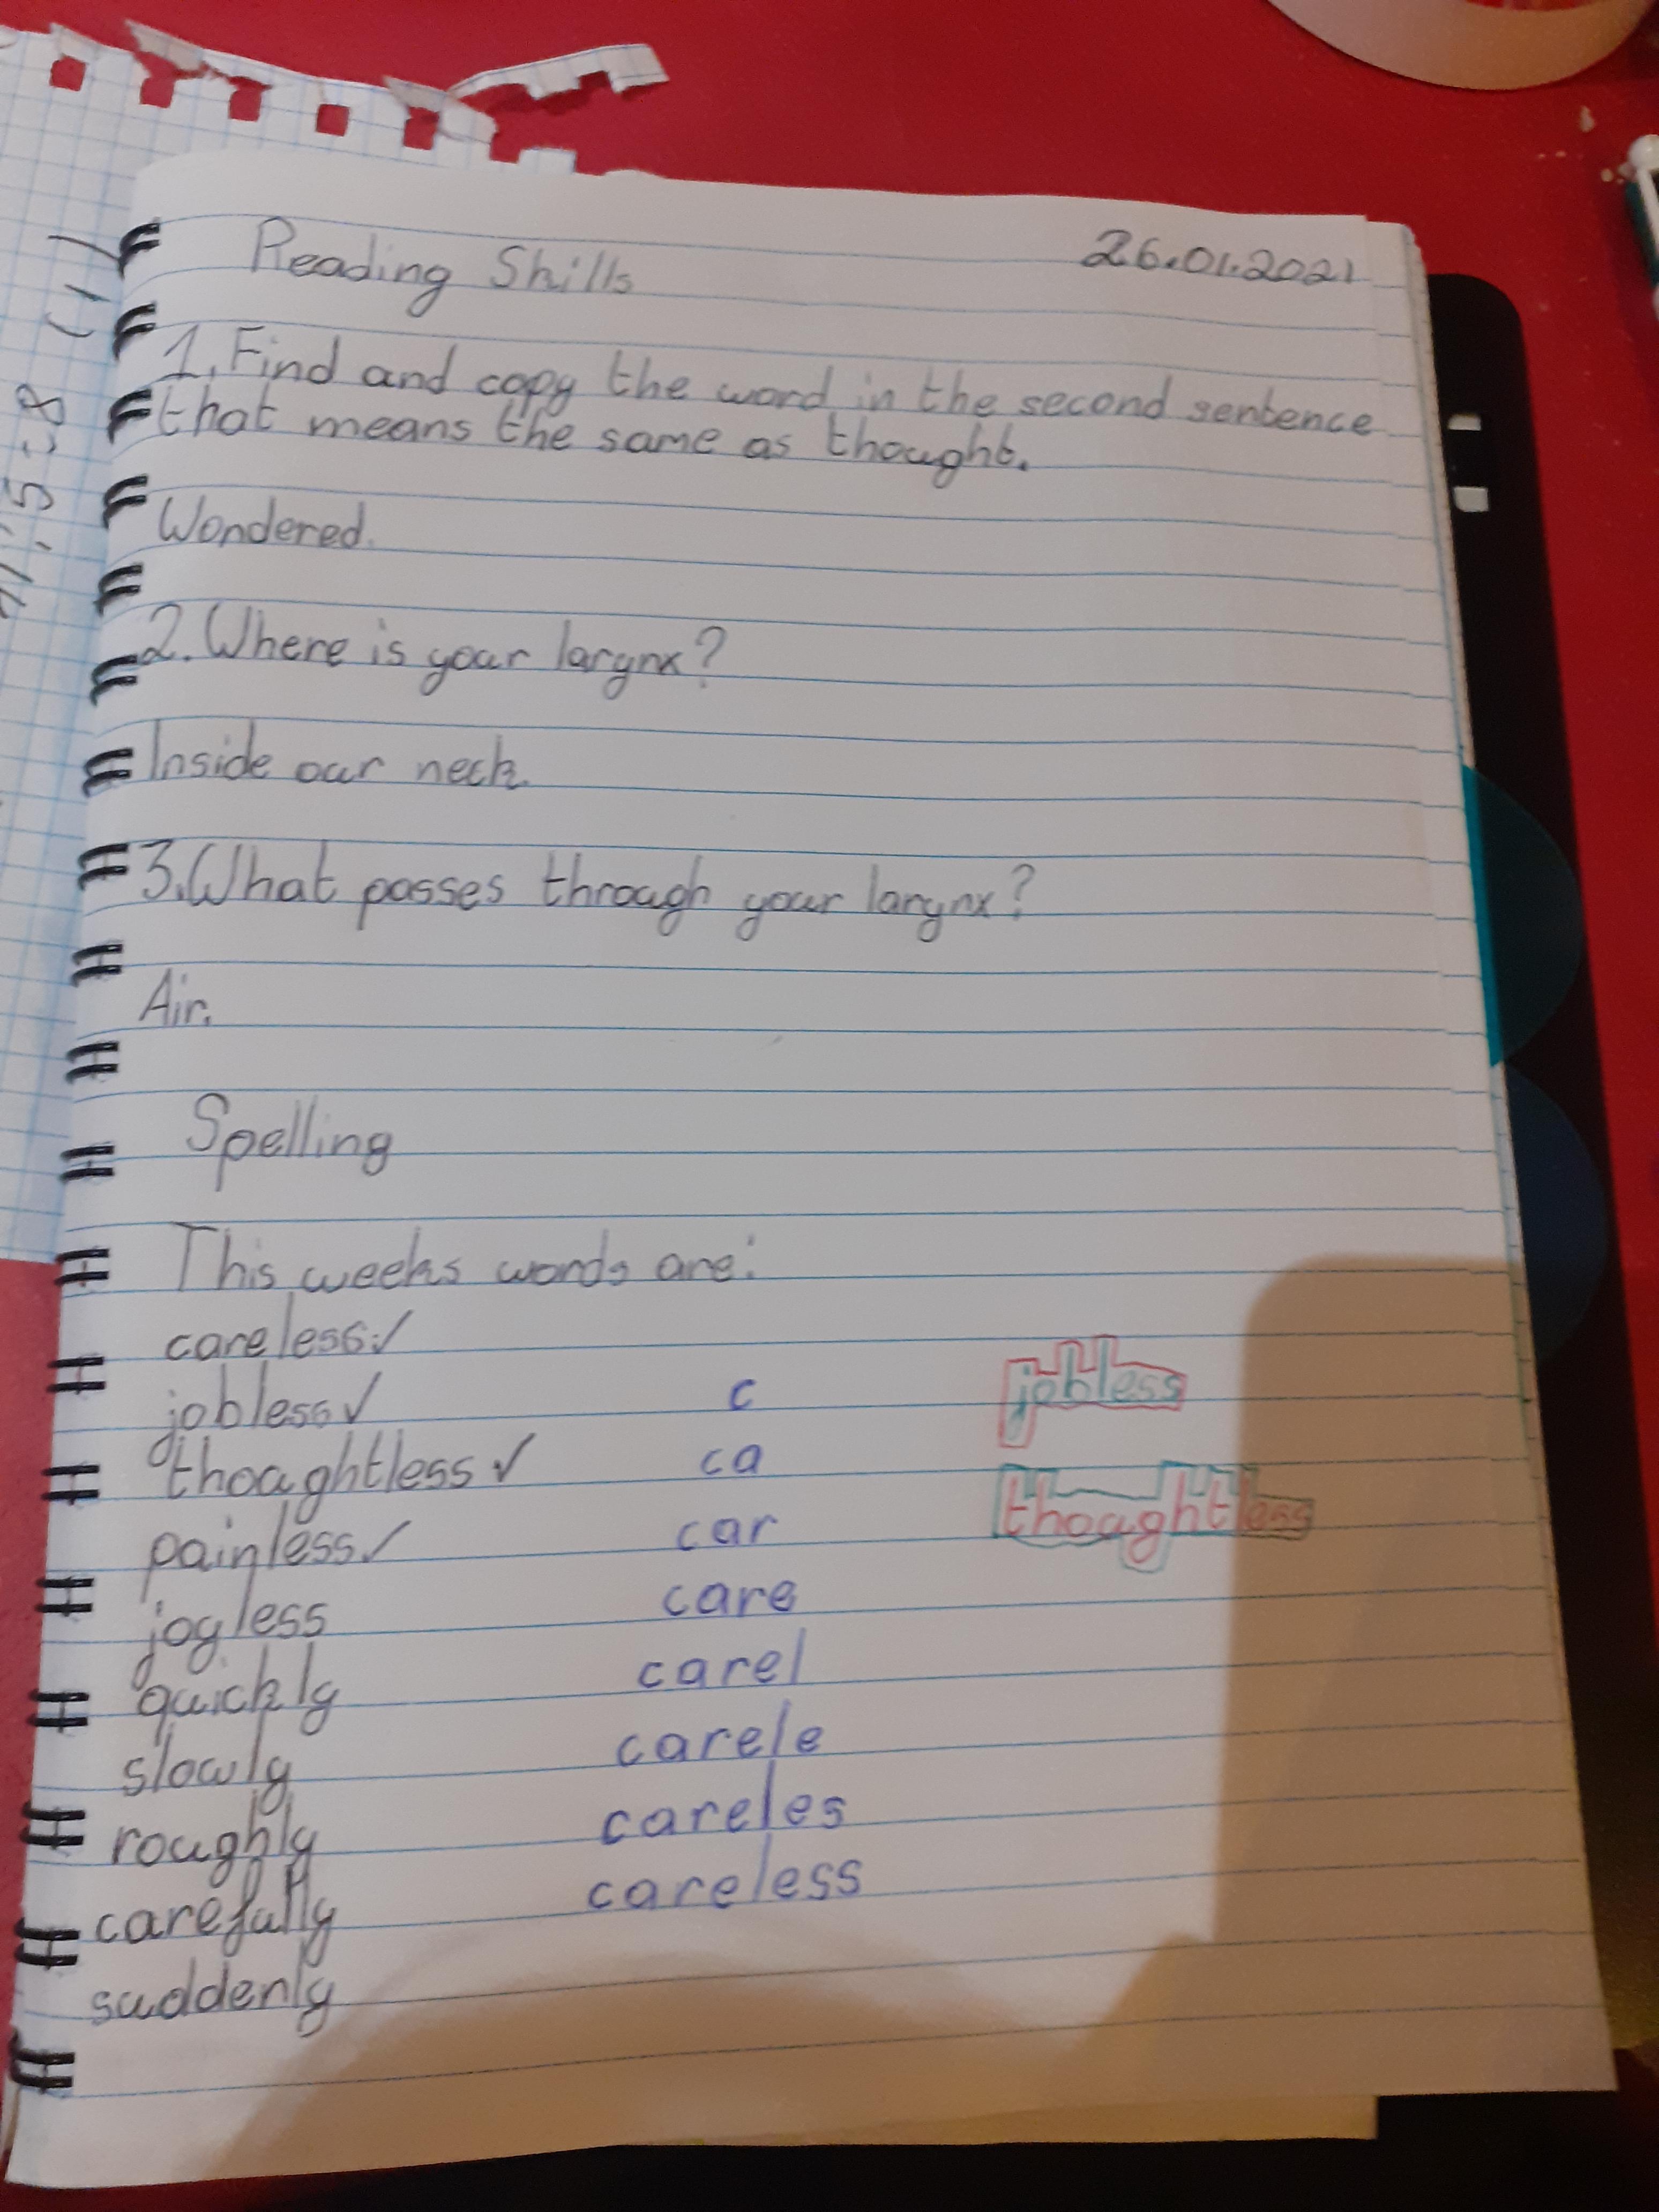 Reading Skills 26.01.2021
1. Find and copy the word in the second sentence
that means the same as thought.
Wondered.
2. Where is your larynx?
Inside our neck.
3. What passes through your larynx?
Air.
Spelling
This weeks words are:
careless ✓
jobless ✓
thoughtless ✓
painless ✓
jogless
quickly
slowly
roughly
carefully
suddenly
c
ca
car
care
carel
carele
careles
careless
jobless
thoughtless